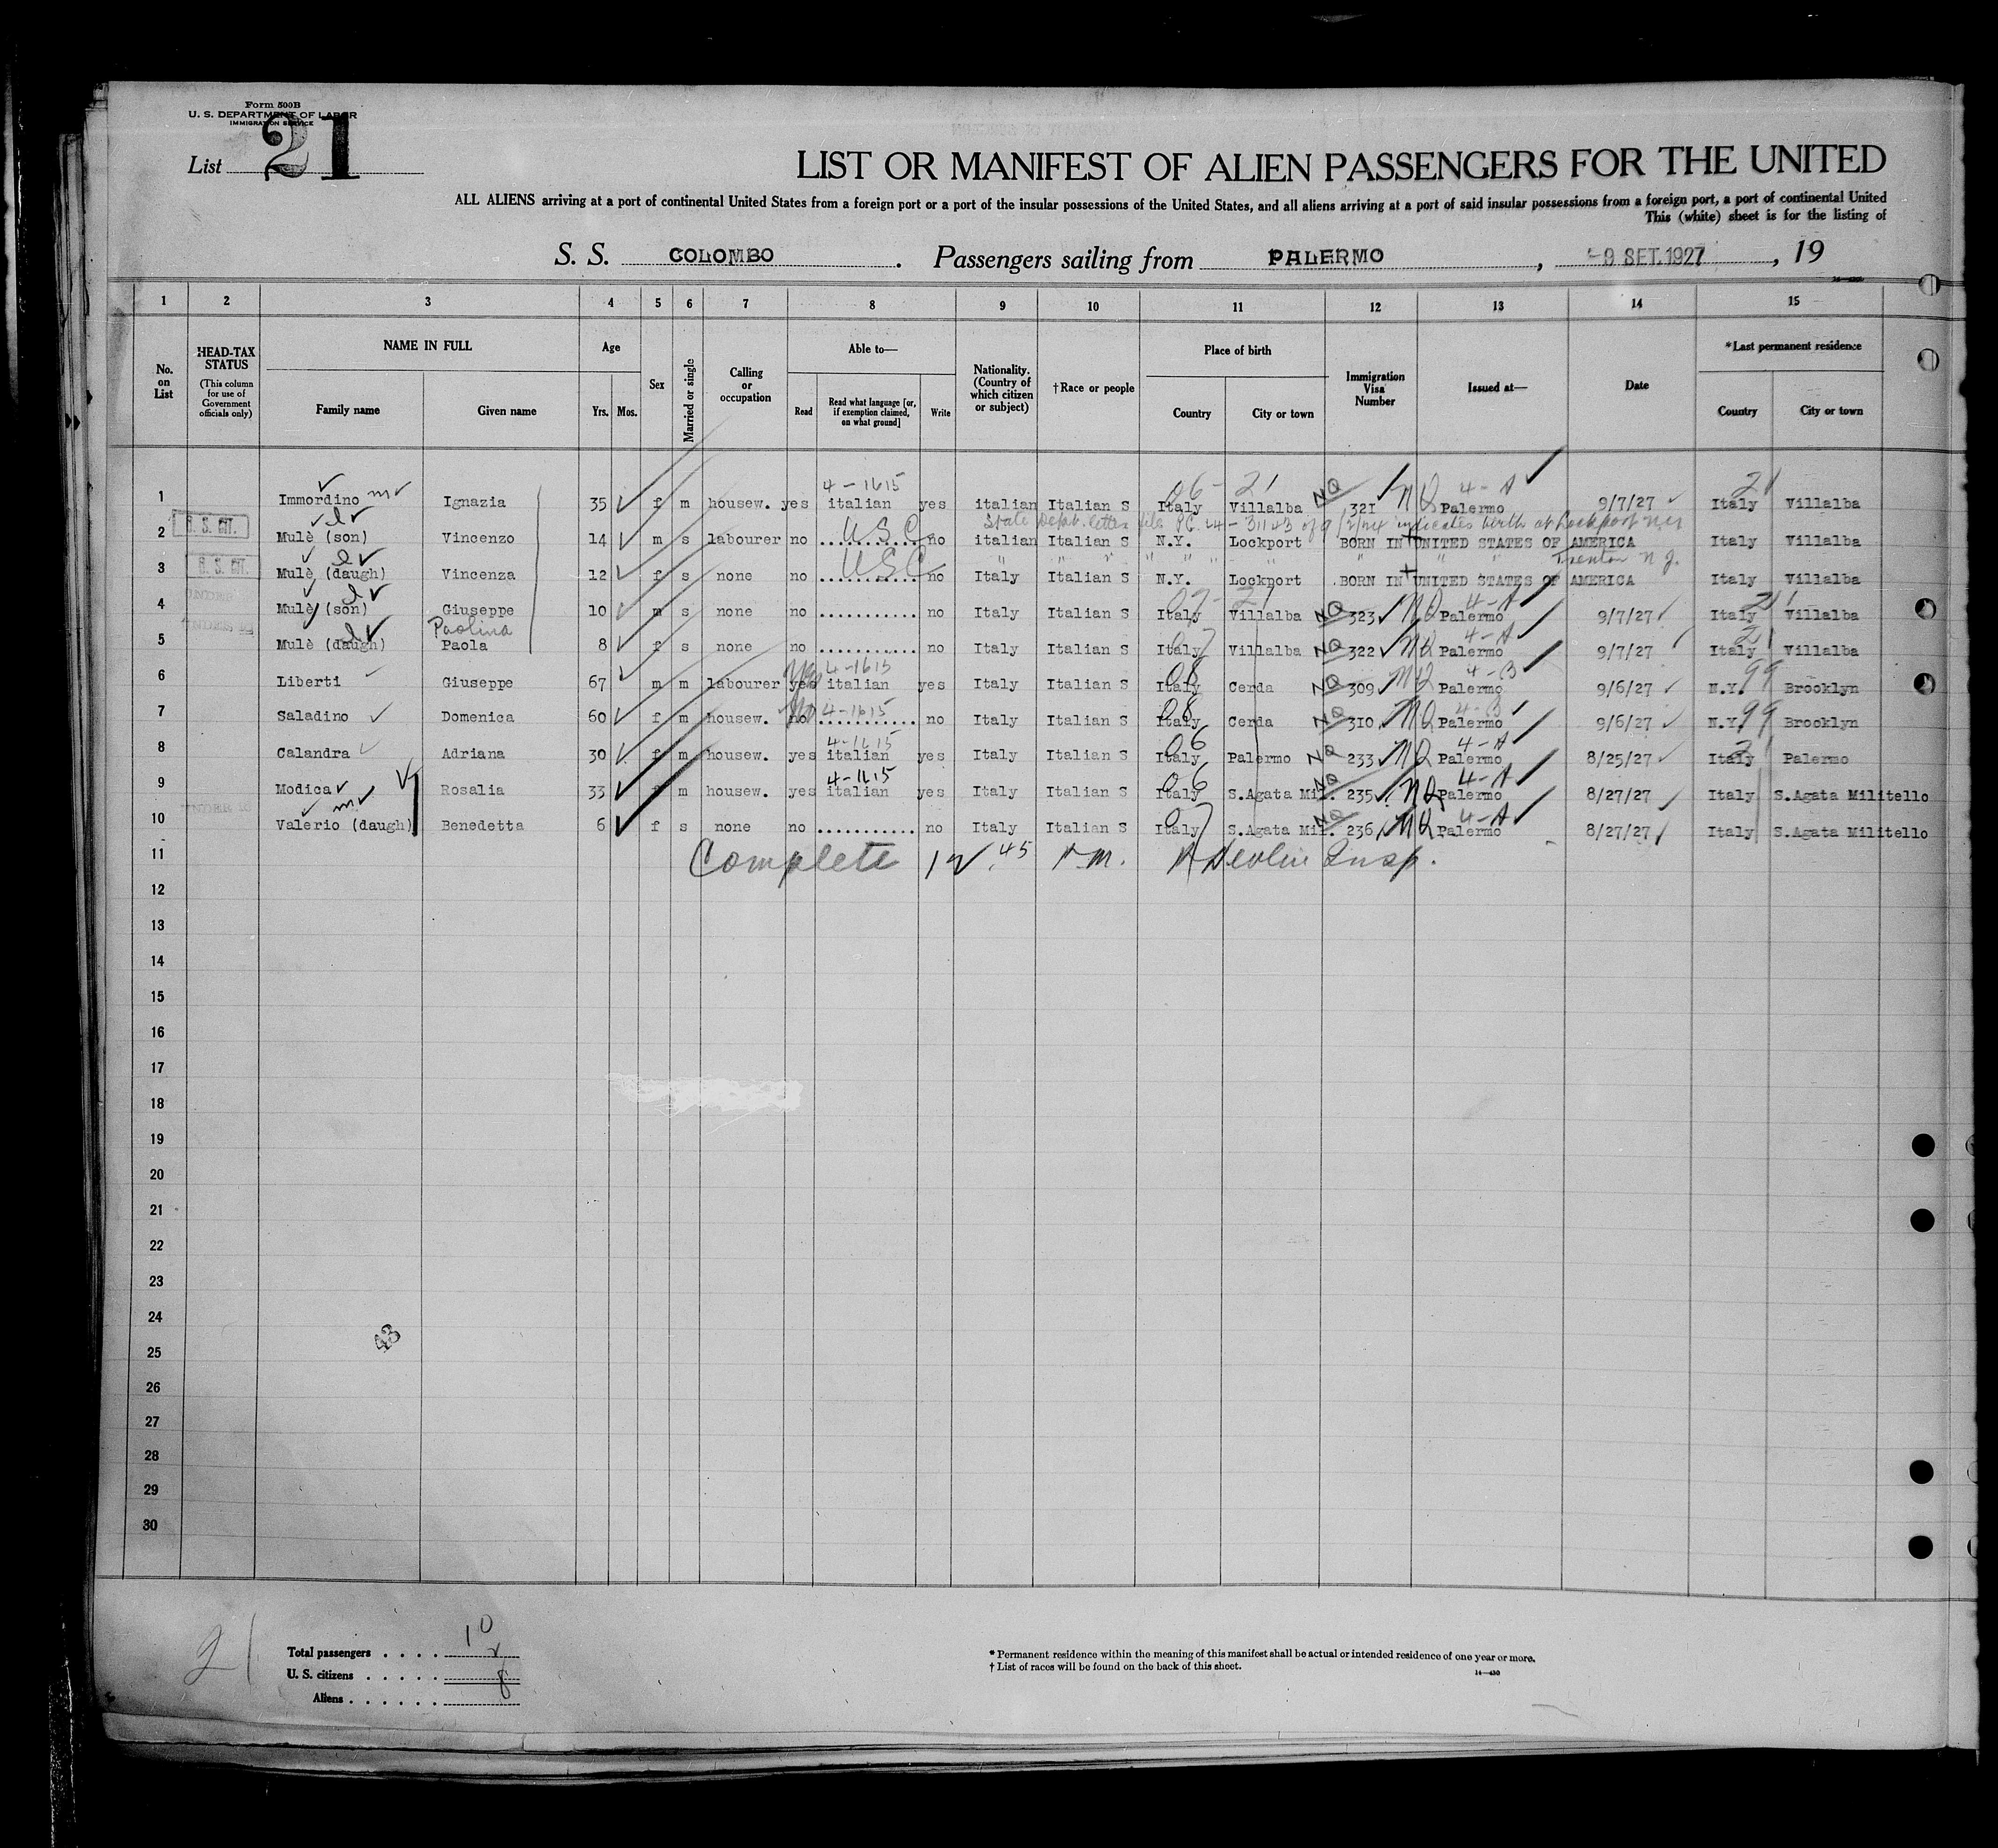 Form 500B
U. S. DEPARTMENT OF LABOR
IMMIGRATION SERVICE
List 21
LIST OR MANIFEST OF ALIEN PASSENGERS FOR THE UNITED
ALL ALIENS arriving at a port of continental United States from a foreign port or a port of the insular possessions of the United States, and all aliens arriving at a port of said insular possessions from a foreign port, a port of continental United
This (white) sheet is for the listing of
S. S. COLOMBO. Passengers sailing from PALERMO, -9 SET. 1927, 19
1 2 3 4 5 6 7 8 9 10 11 12 13 14 15
No. on List
HEAD-TAX STATUS (This column for use of Government officials only)
NAME IN FULL Family name Given name
Age Yrs. Mos.
Sex
Married or single
Calling or occupation
Able to— Read Read what language [or, if exemption claimed, on what ground] Write
Nationality. (Country of which citizen or subject)
†Race or people
Place of birth Country City or town
Immigration Visa Number
Issued at—
Date
*Last permanent residence Country City or town
4-1615 06-21 NQ NQ 4-A 21
1 Immordino Ignazia 35 f m housew. yes italian yes italian Italian S Italy Villalba 321 Palermo 9/7/27 Italy Villalba
State Dept. letter file indicates birth at Lockport N.Y.
2 U. S. CIT. Mulè (son) Vincenzo 14 m s labourer no USC no italian Italian S N.Y. Lockport BORN IN UNITED STATES OF AMERICA Italy Villalba
" " " " " " Trenton N.J.
3 U. S. CIT. Mulè (daugh) Vincenza 12 f s none no USC no Italy Italian S N.Y. Lockport BORN IN UNITED STATES OF AMERICA Italy Villalba
07-21 NQ NQ 4-A 21
4 Mulè (son) Giuseppe 10 m s none no no Italy Italian S Italy Villalba 323 Palermo 9/7/27 Italy Villalba
Paolina 07 NQ NQ 4-A 21
5 Mulè (daugh) Paola 8 f s none no no Italy Italian S Italy Villalba 322 Palermo 9/7/27 Italy Villalba
yes 4-1615 08 NQ NQ 4-B 99
6 Liberti Giuseppe 67 m m labourer yes italian yes Italy Italian S Italy Cerda 309 Palermo 9/6/27 N.Y. Brooklyn
no 4-1615 08 NQ NQ 4-B 99
7 Saladino Domenica 60 f m housew. no no Italy Italian S Italy Cerda 310 Palermo 9/6/27 N.Y. Brooklyn
4-1615 06 NQ NQ 4-A 21
8 Calandra Adriana 30 f m housew. yes italian yes Italy Italian S Italy Palermo 233 Palermo 8/25/27 Italy Palermo
4-1615 06 NQ NQ 4-A
9 Modica Rosalia 33 f m housew. yes italian yes Italy Italian S Italy S.Agata Mil. 235 Palermo 8/27/27 Italy S.Agata Militello
07 NQ NQ 4-A
10 Valerio (daugh) Benedetta 6 f s none no no Italy Italian S Italy S.Agata Mil. 236 Palermo 8/27/27 Italy S.Agata Militello
11 Complete 12.45 P.M. Devlin Insp.
12
13
14
15
16
17
18
19
20
21
22
23
24
25
26
27
28
29
30
43
21
Total passengers 10
U. S. citizens 2
Aliens 8
* Permanent residence within the meaning of this manifest shall be actual or intended residence of one year or more.
† List of races will be found on the back of this sheet.
14—430